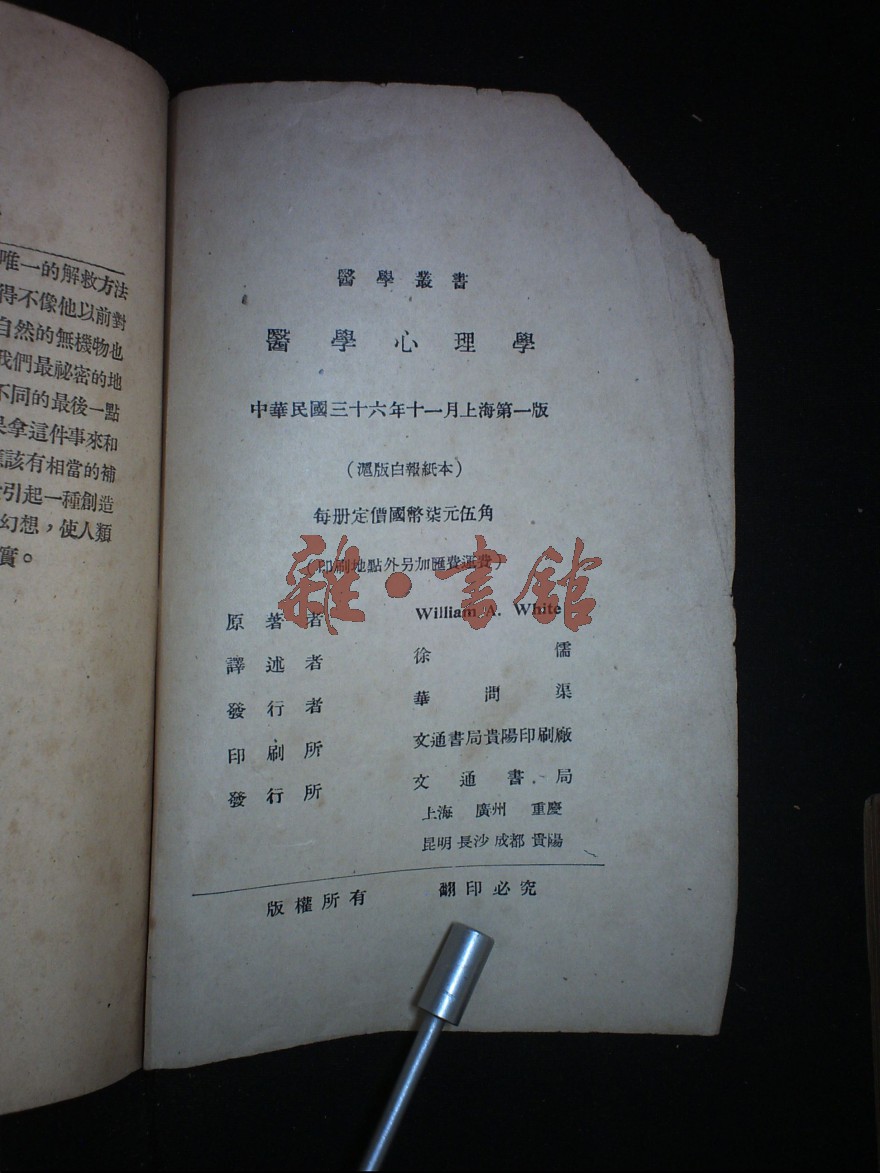 唯一的解救方法
得不像他以前對
自然的無機物也
我們最祕密的地
不同的最後一點
拿這件事來和
應該有相當的補
引起一種創造
幻想，使人類
實。
醫學叢書
醫學心理學
中華民國三十六年十一月上海第一版
（滬版白報紙本）
每册定價國幣柒元伍角
（印刷地點外另加匯費運費）
雜·書館
原著者 William A. White
譯述者 徐儒
發行者 華問渠
印刷所 文通書局貴陽印刷廠
發行所 文通書局
上海 廣州 重慶
昆明 長沙 成都 貴陽
版權所有 翻印必究